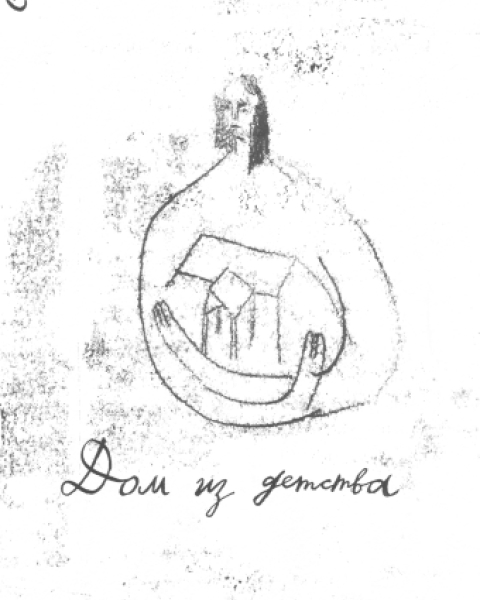 Дом из детства